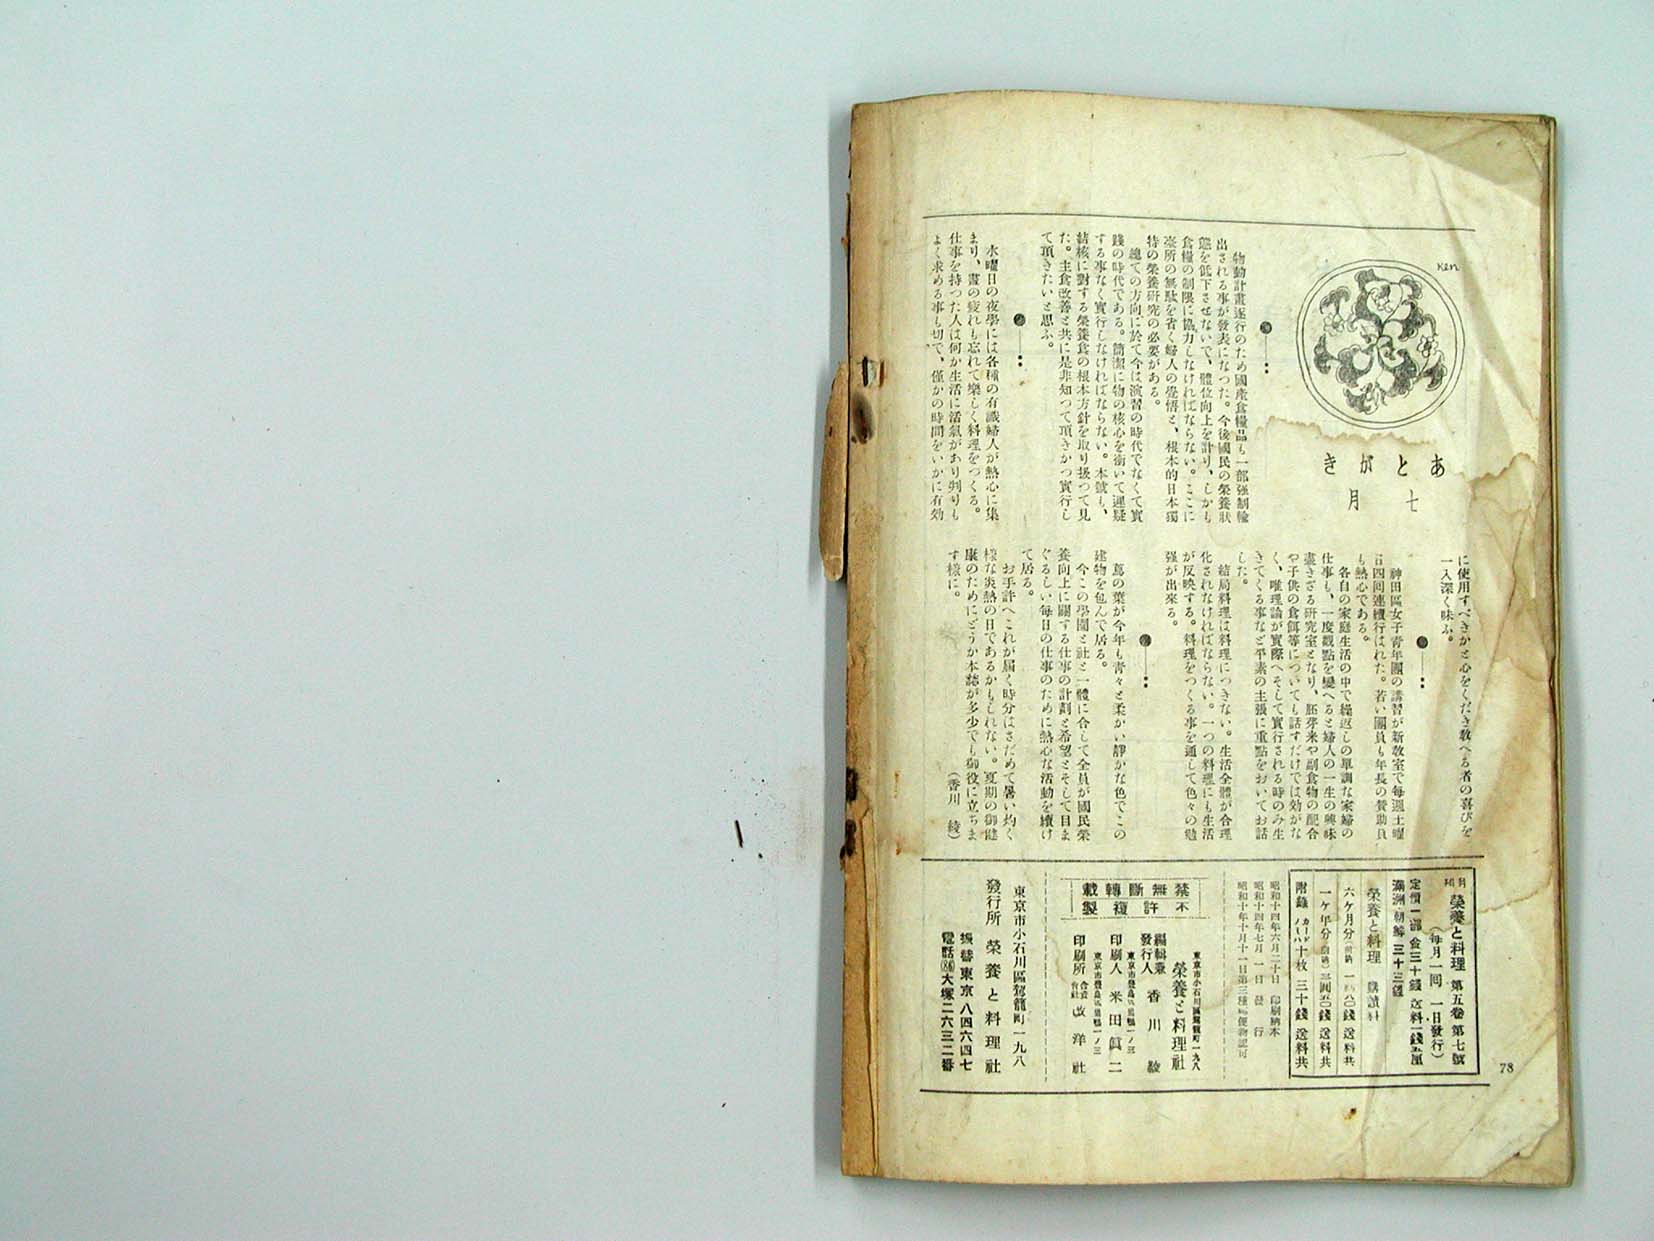 Ken
あとがき
七月
物動計畫遂行のため國產食糧品も一部強制輸
出される事が發表になつた。今後國民の榮養狀
態を低下させないで、體位向上を計り、しかも
食糧の制限に協力しなければならない。ここに
臺所の無駄を省く婦人の覺悟と、根本的日本獨
特の榮養硏究の必要がある。
總ての方向に於て今は演習の時代でなくて實
踐の時代である。簡潔に物の核心を衝いて遲疑
する事なく實行しなければならない。本號も、
結核に對する榮養食の根本方針を取り扱つて見
た。主食改善と共に是非知つて頂きかつ實行し
て頂きたいと思ふ。
水曜日の夜學には各種の有識婦人が熱心に集
まり、晝の疲れも忘れて樂しく料理をつくる。
仕事を持つた人は何か生活に活氣があり判りも
よく求める事も切で、僅かの時間をいかに有効
に使用すべきかと心をくだき敎へる者の喜びを
一入深く味ふ。
神田區女子靑年團の講習が新敎室で每週土曜
日四回連續行はれた。若い團員も年長の賛助員
も熱心である。
各自の家庭生活の中で繰返しの單調な家婦の
仕事も、一度觀點を變へると婦人の一生の興味
盡きざる硏究室となり、胚芽米や副食物の配合
や子供の食餌等についても話すだけでは効がな
く、唯理論が實際へそして實行される時のみ生
きてくる事など平素の主張に重點をおいてお話
した。
結局料理は料理につきない。生活全體が合理
化されなければならない。一つの料理にも生活
が反映する。料理をつくる事を通して色々の勉
强が出來る。
蔦の葉が今年も靑々と柔かい靜かな色でこの
建物を包んで居る。
今この學園と社と一體に合して全員が國民榮
養向上に關する仕事の計劃と希望とそして目ま
ぐるしい每日の仕事のために熱心な活動を續け
て居る。
お手許へこれが屆く時分はさだめて暑い灼く
樣な炎熱の日であるかもしれない。夏期の御健
康のためにどうか本誌が多少でも御役に立ちま
す樣に。
（香川 綾）
月刊 榮養と料理 第五卷 第七號
（每月一回 一日發行）
定價一部金三十錢 送料一錢五厘
滿洲・朝鮮 三十三錢
榮養と料理 購讀料
六ケ月分（前納）一圓八〇錢 送料共
一ケ年分（前納）三圓五〇錢 送料共
附錄 カード 十枚 三十錢 送料共
昭和十四年六月二十日 印刷納本
昭和十四年七月一日 發行
昭和十年十月十一日第三種郵便物認可
東京市小石川區駕籠町一九八
榮養と料理社
編輯兼發行人 香川 綾
東京市豊島區巢鴨一ノ三
印刷人 米田眞二
東京市豊島區巢鴨一ノ三
印刷所 合資會社 改洋社
禁無斷轉載
不許複製
東京市小石川區駕籠町一九八
發行所 榮養と料理社
振替東京八四六四七
電話(86)大塚二六三二番
78